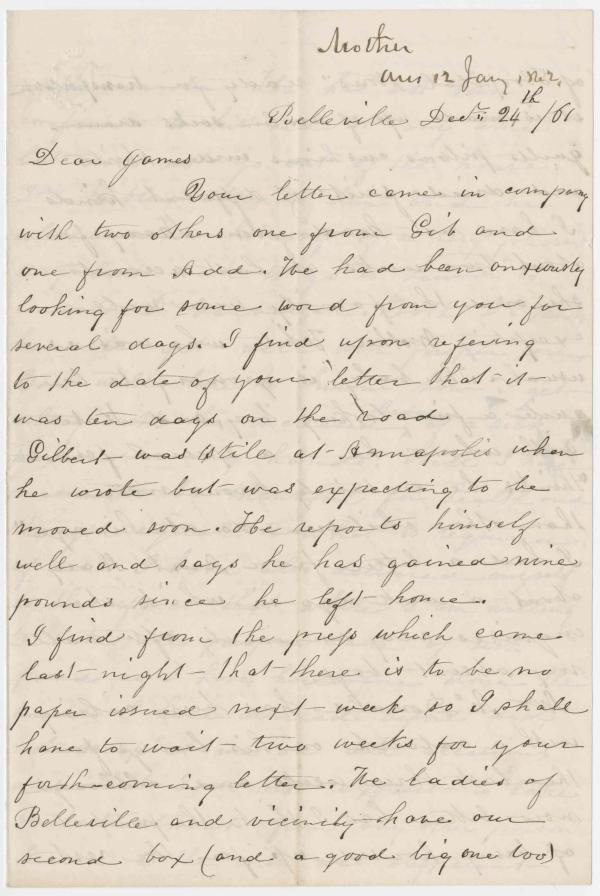 Mother
Ans 12 Jany 1862.
Belleville Dec. 24th /61
Dear James
Your letter came in company
with two others one from Gib and
one from Add. We had been anxiously
looking for some word from you for
several days. I find upon refering
to the date of your letter that it
was ten days on the road
Gilbert was stile at Annapolis when
he wrote but was expecting to be
moved soon. He reports himself
well and says he has gained nine
pounds since he left home.
I find from the press which came
last night that there is to be no
paper issued next week so I shall
have to wait two weeks for your
forth-coming letter. The ladies of
Belleville and vicinity have our
second box (and a good big one too)